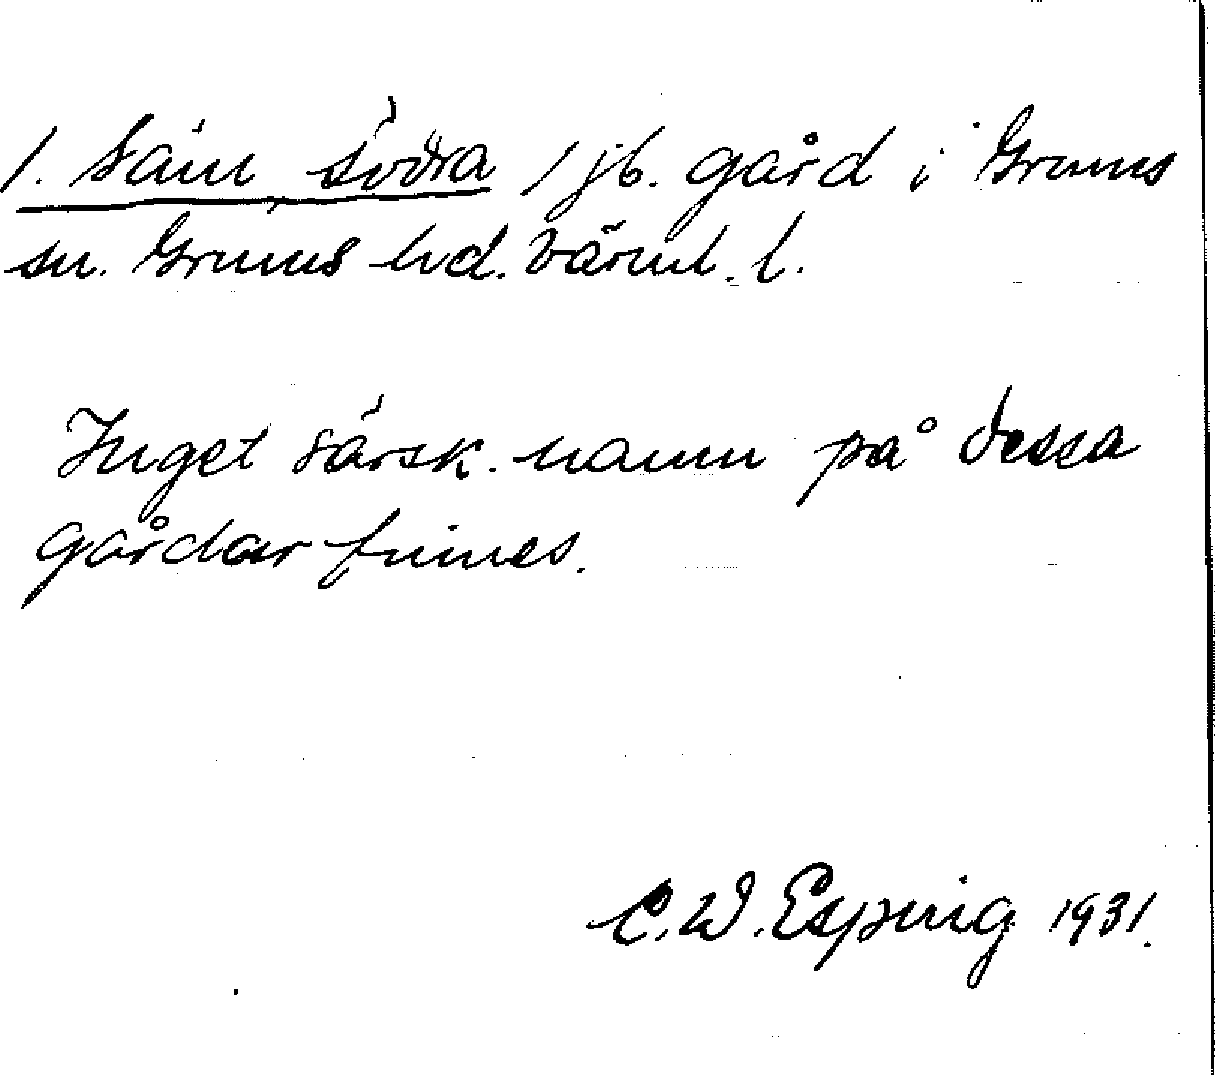 1. Säm södra 1 jb. gård i Grums
sn. Grums hd. Värml. l.
Inget särsk. namn på dessa
gårdar finnes.
C. W. Esping 1931.